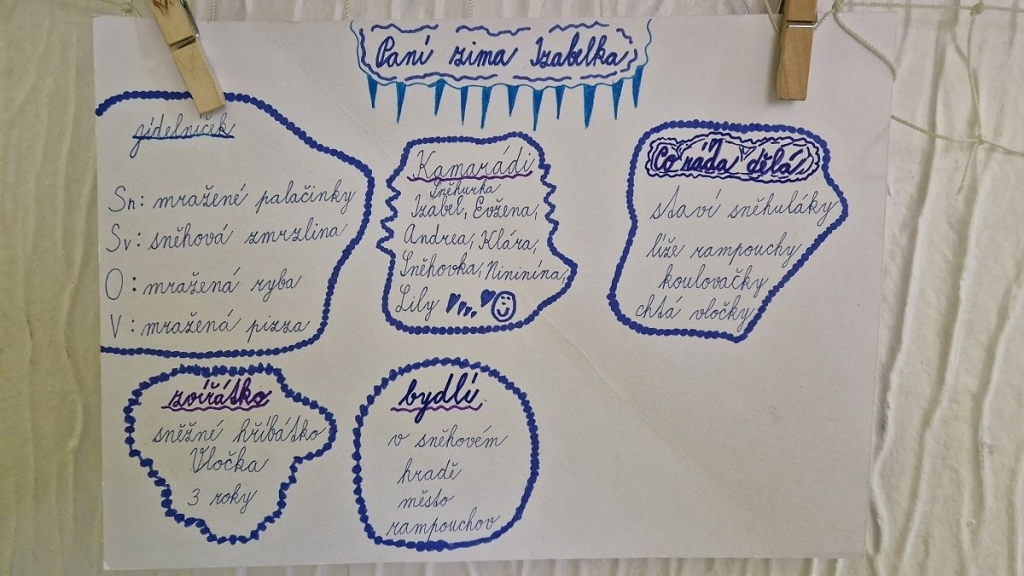 Paní zima Izabelka
jídelníček
Sn: mražené palačinky
Sv: sněhová zmrzlina
O: mražená ryba
V: mražená pizza
Kamarádi
Sněhurka
Izabel, Evžena,
Andrea, Klára,
Sněhovka, Nininína,
Lily
Co ráda dělá
staví sněhuláky
líže rampouchy
koulovačky
chtá vločky
zvířátko
sněžné hříbátko
Vločka
3 roky
bydlí
v sněhovém
hradě
město
rampouchov